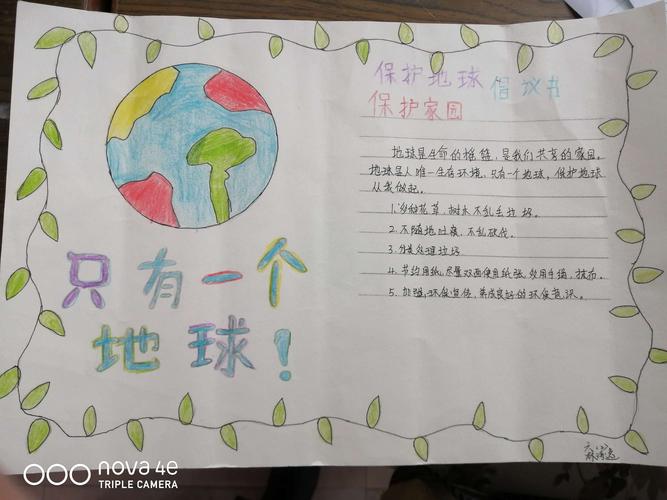 保护地球 倡议书
保护家园
地球是生命的摇篮,是我们共享的家园。
地球是人唯一生存环境,只有一个地球,保护地球
从我做起。
花草,树木不乱丢垃圾。
2.不随地吐痰,不乱砍伐。
3.分类处理垃圾
4.节约用纸,尽量双面使用纸张,多用手绢,抹布。
5.加强,环保宣传,养成良好的环保意识。
只有一个
地球!
nova 4e
TRIPLE CAMERA